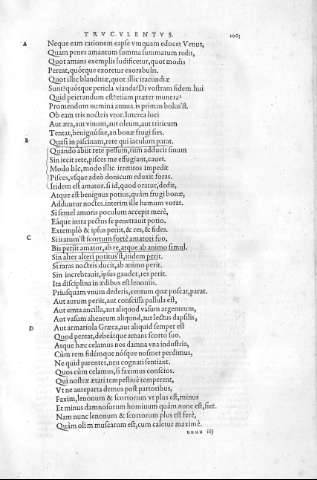 TRVCVLENTVS. 1003
A Neque eam rationem eapse vnquam edocet Venus,
Quam penes amantum summa summarum redit,
Quot amans exemplis ludificetur, quot modis
Pereat, quótque exoretur exorabulis.
Quot illic blanditiæ, quot illic iracundiæ
Sunt? quot pericla vlanda? Di vostram fidem hui
Quid peierandum est? etiam præter munera?
Promendom nummi annua. is primus bolus'st.
Ob eam tris noctes
Aut æra, aut vinum, aut oleum, aut triticum
Tentat, benignúsne, an bonæ frugi sies.
B Quasi in piscinam, rete qui iaculum parat.
Quando abiit rete pessum, tum adducit sinum
Sin iecit rete, pisces ne effugiant, cauet.
Modo huc, modò illuc irretitos impedit
Pisces, vsque adeò donicum eduxit foras.
Itidem est amator. si id, quod oratur, dedit,
Atque est benignus potius, quàm frugi bonæ,
Adduntur noctes. interim ille hamum vorat.
Si semel amoris poculum accepit merè,
Eáque intra pectus se penetrauit potio,
Extemplò & ipsus periit, & res, & fides.
C Si iratum'st scortum fortè amatori suo,
Bis perit amator, ab re, atque ab animo simul.
Sin alter alteri potitus'st, itidem perit.
Si raras noctes ducit, ab animo perit.
Sin increbrauit, ipsus gaudet, res perit.
Ita disciplina in ædibus est lenoniis.
Priusquam vnum dederis, centum quæ poscat, parat.
Aut aurum periit, aut conscissa pallula est,
Aut emta ancilla, aut aliquod vasum argenteum,
Aut vasum ahenum aliquod, aut lectus dapsilis,
D Aut armariola Græca, aut aliquid semper est
Quod pereat, debeátque amans scorto suo.
Atque hæc celamus nos damna vna industria,
Cùm rem fidémque nósque nosmet perdimus,
Ne quid parentes, neu cognati sentiant.
Quos cùm celamus, si faximus conscios.
Qui nostræ ætati tempestiuè temperent,
Vt ne anteparta demus post partoribus,
Faxim, lenonum & scortorum vt plus est, minus
Et minus damnosorum hominum quàm nunc est, siet.
Nam nunc lenonum & scortorum plus est ferè,
Quàm olim muscarum est, cum caletur maximè.
iij